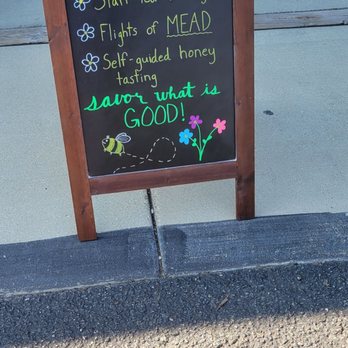 Flights of MEAD
Self-guided honey
tasting
savor what is
GOOD!